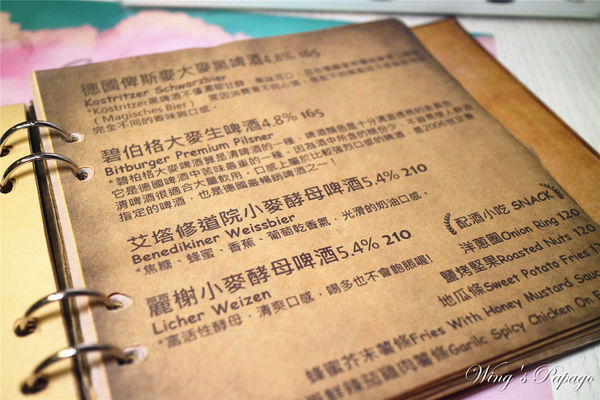 德國俾斯麥大麥黑啤酒4.8% 165
Kostritzer Schwarzbier
*Köstritzer黑啤酒不僅濃郁甘醇
(Magisches Bier)
完全不同的香味與口感。
碧伯格大麥生啤酒4.8% 165
Bitburger Premium Pilsner
*碧伯格大麥啤酒算是清啤酒的一種,
它是德國啤酒中苦味最重的一種,因為酒中所含的糖份少,
清啤酒很適合大量飲用,口感上屬於比較強烈口感的啤酒,是2006世足賽
指定的啤酒,也是德國最暢銷啤酒之一!
艾塔修道院小麥酵母啤酒5.4% 210
Benedikiner Weissbier
*焦糖、蜂蜜、香蕉、葡萄乾香氣,光滑的奶油口感。
麗榭小麥酵母啤酒5.4% 210
Licher Weizen
*高活性酵母,清爽口感,喝多也不會飽脹喔!
配酒小吃 SNACK
洋蔥圈Onion Ring 120
鹽烤堅果Roasted Nuts 120
地瓜條Sweet Potato Fries
蜂蜜芥末薯條Fries With Honey Mustard Sauce
鮮辣茄雞肉薯條Garlic Spicy Chicken On
Wing's Papago